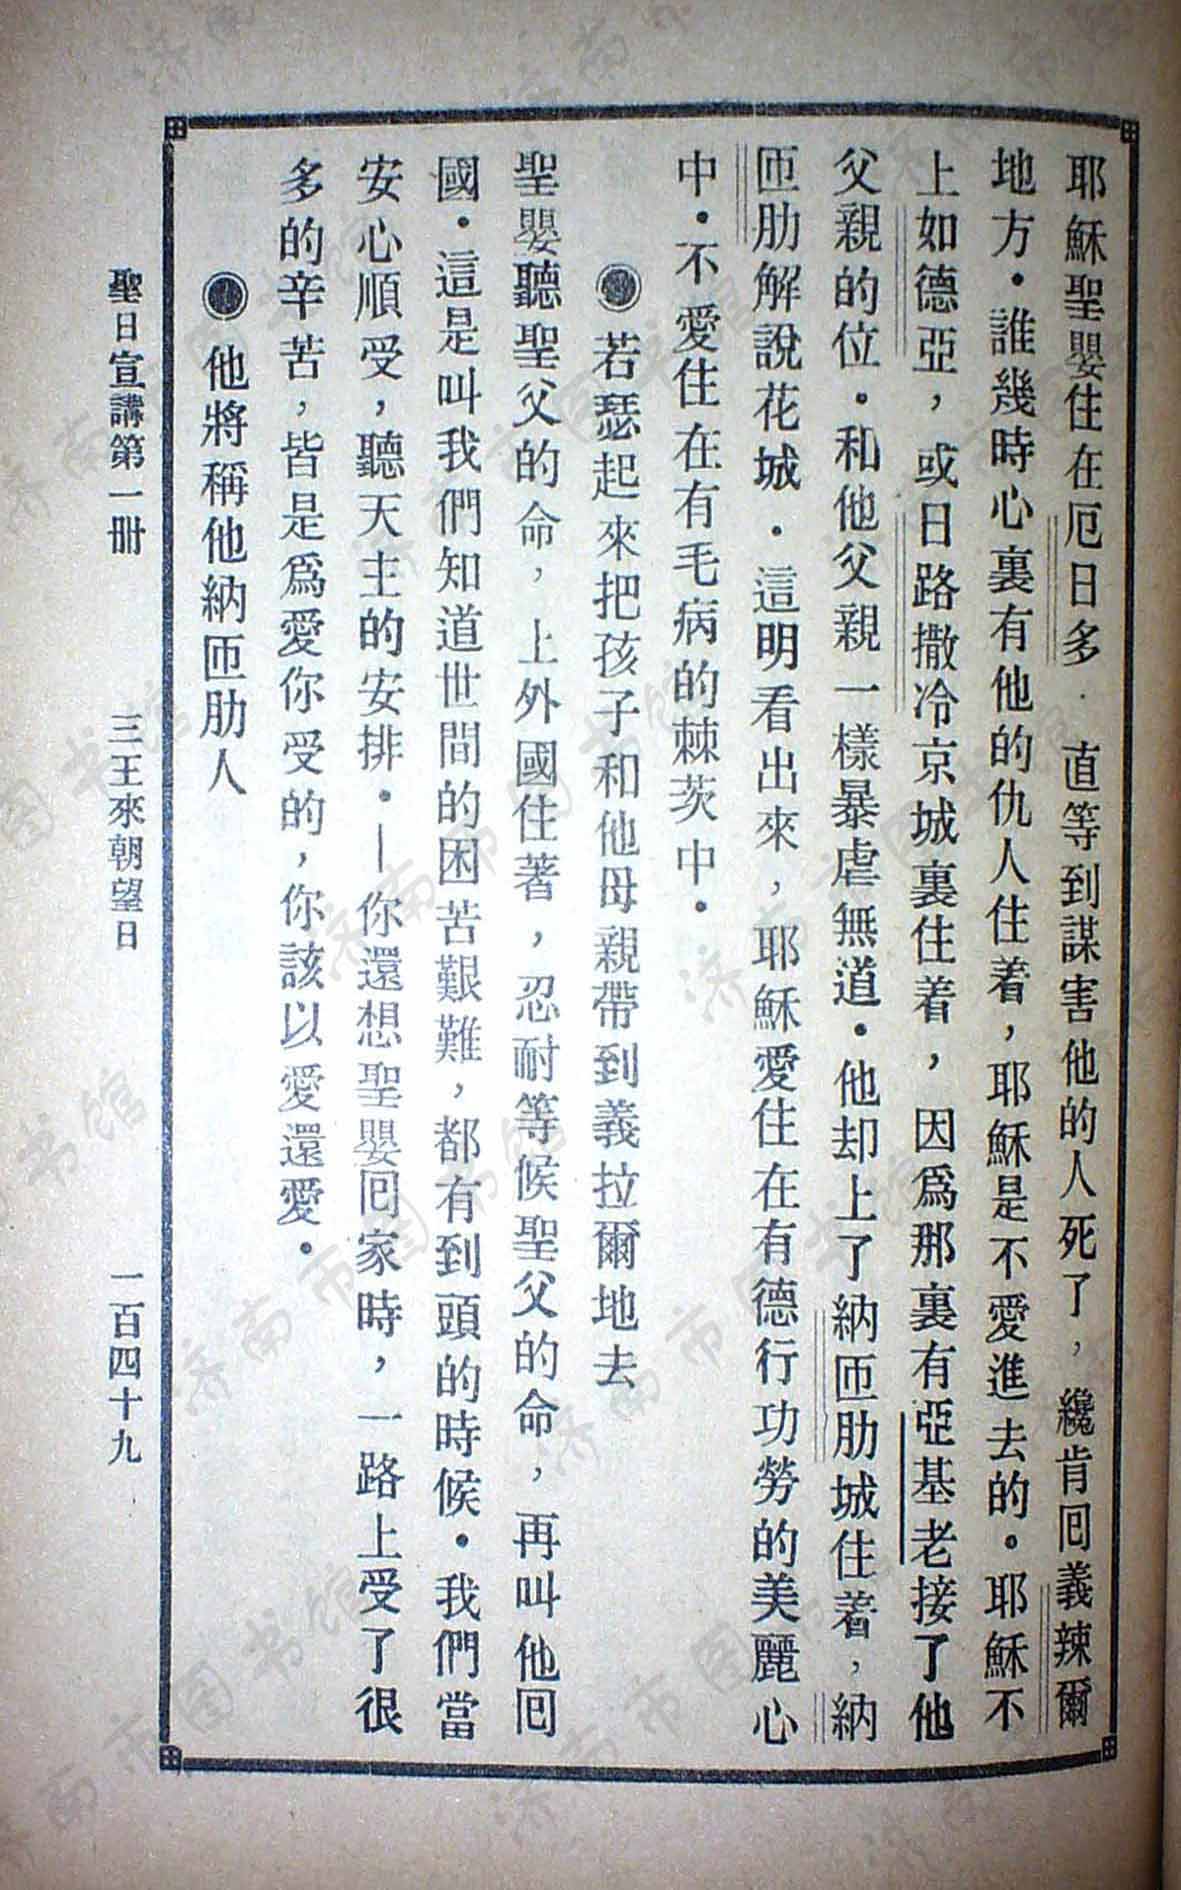 耶穌聖嬰住在厄日多．直等到謀害他的人死了，纔肯囘義辣爾
地方．誰幾時心裏有他的仇人住着，耶穌是不愛進去的。耶穌不
上如德亞，或日路撒冷京城裏住着，因爲那裏有亞基老接了他
父親的位．和他父親一樣暴虐無道．他却上了納匝肋城住着，納
匝肋解說花城．這明看出來，耶穌愛住在有德行功勞的美麗心
中．不愛住在有毛病的棘茨中．
●若瑟起來把孩子和他母親帶到義拉爾地去
聖嬰聽聖父的命，上外國住著，忍耐等候聖父的命，再叫他囘
國．這是叫我們知道世間的困苦艱難，都有到頭的時候．我們當
安心順受，聽天主的安排．—你還想聖嬰囘家時，一路上受了很
多的辛苦，皆是爲愛你受的，你該以愛還愛．
●他將稱他納匝肋人
聖日宣講第一冊 三王來朝望日 一百四十九
济南市图书馆